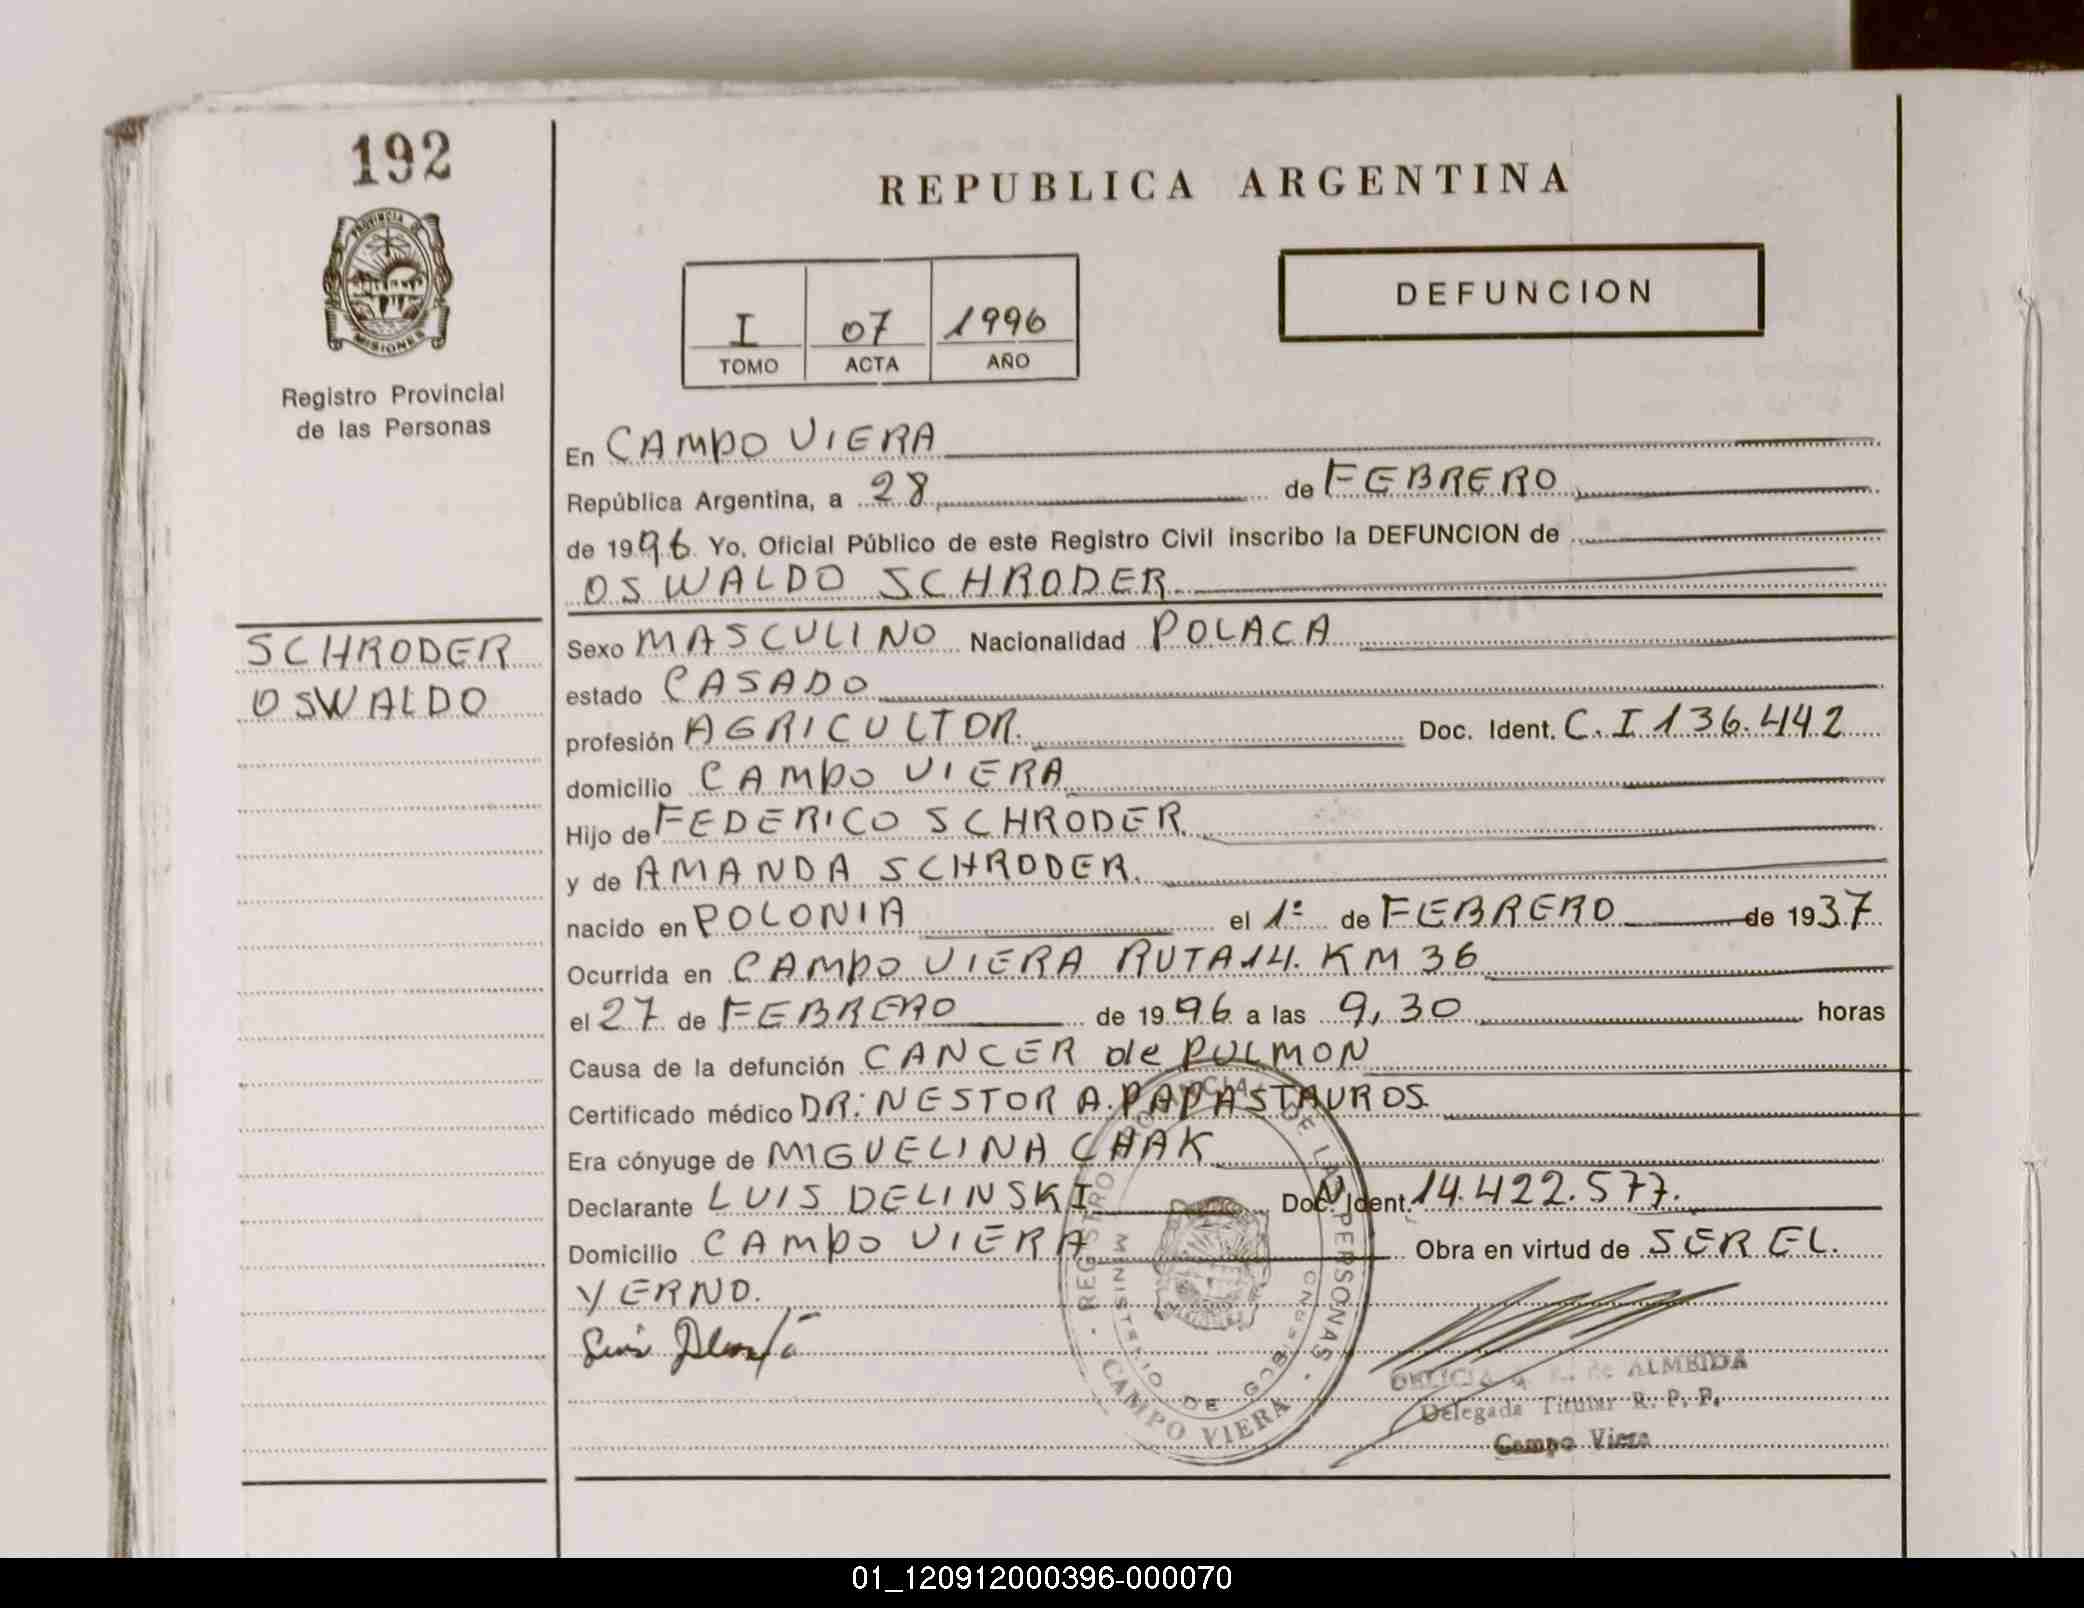 192
PROVINCIA DE
MISIONES
Registro Provincial
de las Personas
SCHRODER
OSWALDO
REPUBLICA ARGENTINA
I 07 1996
TOMO ACTA AÑO
DEFUNCION
En CAMPO VIERA
República Argentina, a 28 de FEBRERO
de 1996 Yo, Oficial Público de este Registro Civil inscribo la DEFUNCION de
OSWALDO SCHRODER
Sexo MASCULINO Nacionalidad POLACA
estado CASADO
profesión AGRICULTOR. Doc. Ident. C.I 136.442
domicilio CAMPO VIERA
Hijo de FEDERICO SCHRODER.
y de AMANDA SCHRODER.
nacido en POLONIA el 1º de FEBRERO de 1937
Ocurrida en CAMPO VIERA RUTA 14. KM 36
el 27 de FEBRERO de 1996 a las 9,30 horas
Causa de la defunción CANCER de PULMON
Certificado médico DR: NESTOR A. PAPASTAUROS.
Era cónyuge de MIGUELINA CHAK
Declarante LUIS DELINSKI Doc. Ident. 14.422.577.
Domicilio CAMPO VIERA Obra en virtud de SER EL.
YERNO.
Luis
REGISTRO PROVINCIAL DE LAS PERSONAS
MINISTERIO DE GOBIERNO
CAMPO VIERA
de ALMEIDA
Delegada Titular R. P. P.
Campo Viera
01_120912000396-000070